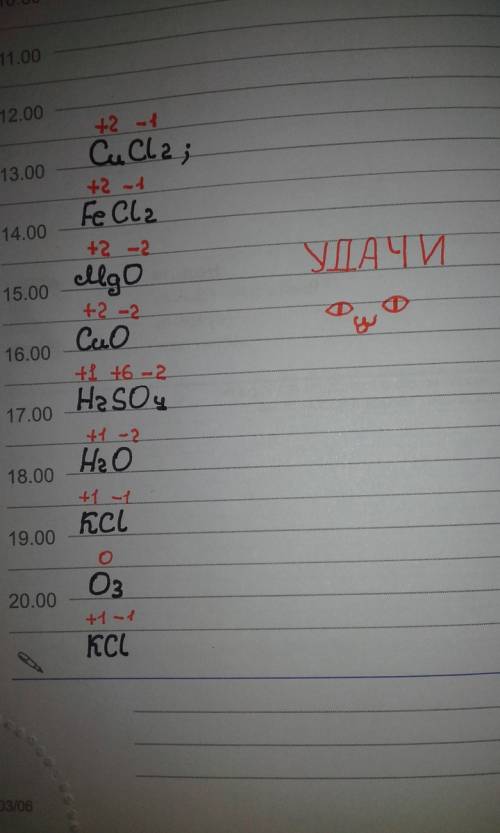 11.00
12.00
+2 -1
CuCl2;
13.00
+2 -1
FeCl2
14.00
+2 -2
УДАЧИ
MgO
15.00
+2 -2
CuO
16.00
+1 +6 -2
H2SO4
17.00
+1 -2
H2O
18.00
+1 -1
KCl
19.00
0
O3
20.00
+1 -1
KCl
03/06